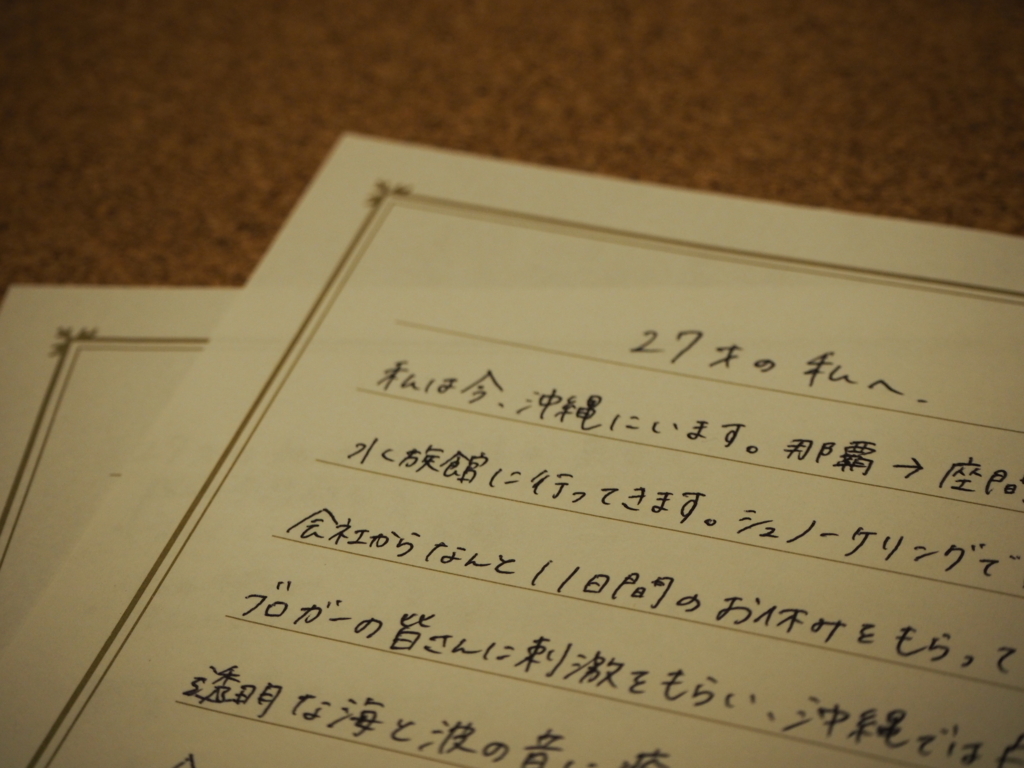 27才の私へ.
私は今、沖縄にいます。那覇→座間
水族館に行ってきます。シュノーケリングで
会社からなんと11日間のお休みをもらって
ブロガーの皆さんに刺激をもらい、沖縄では
透明な海と波の音に